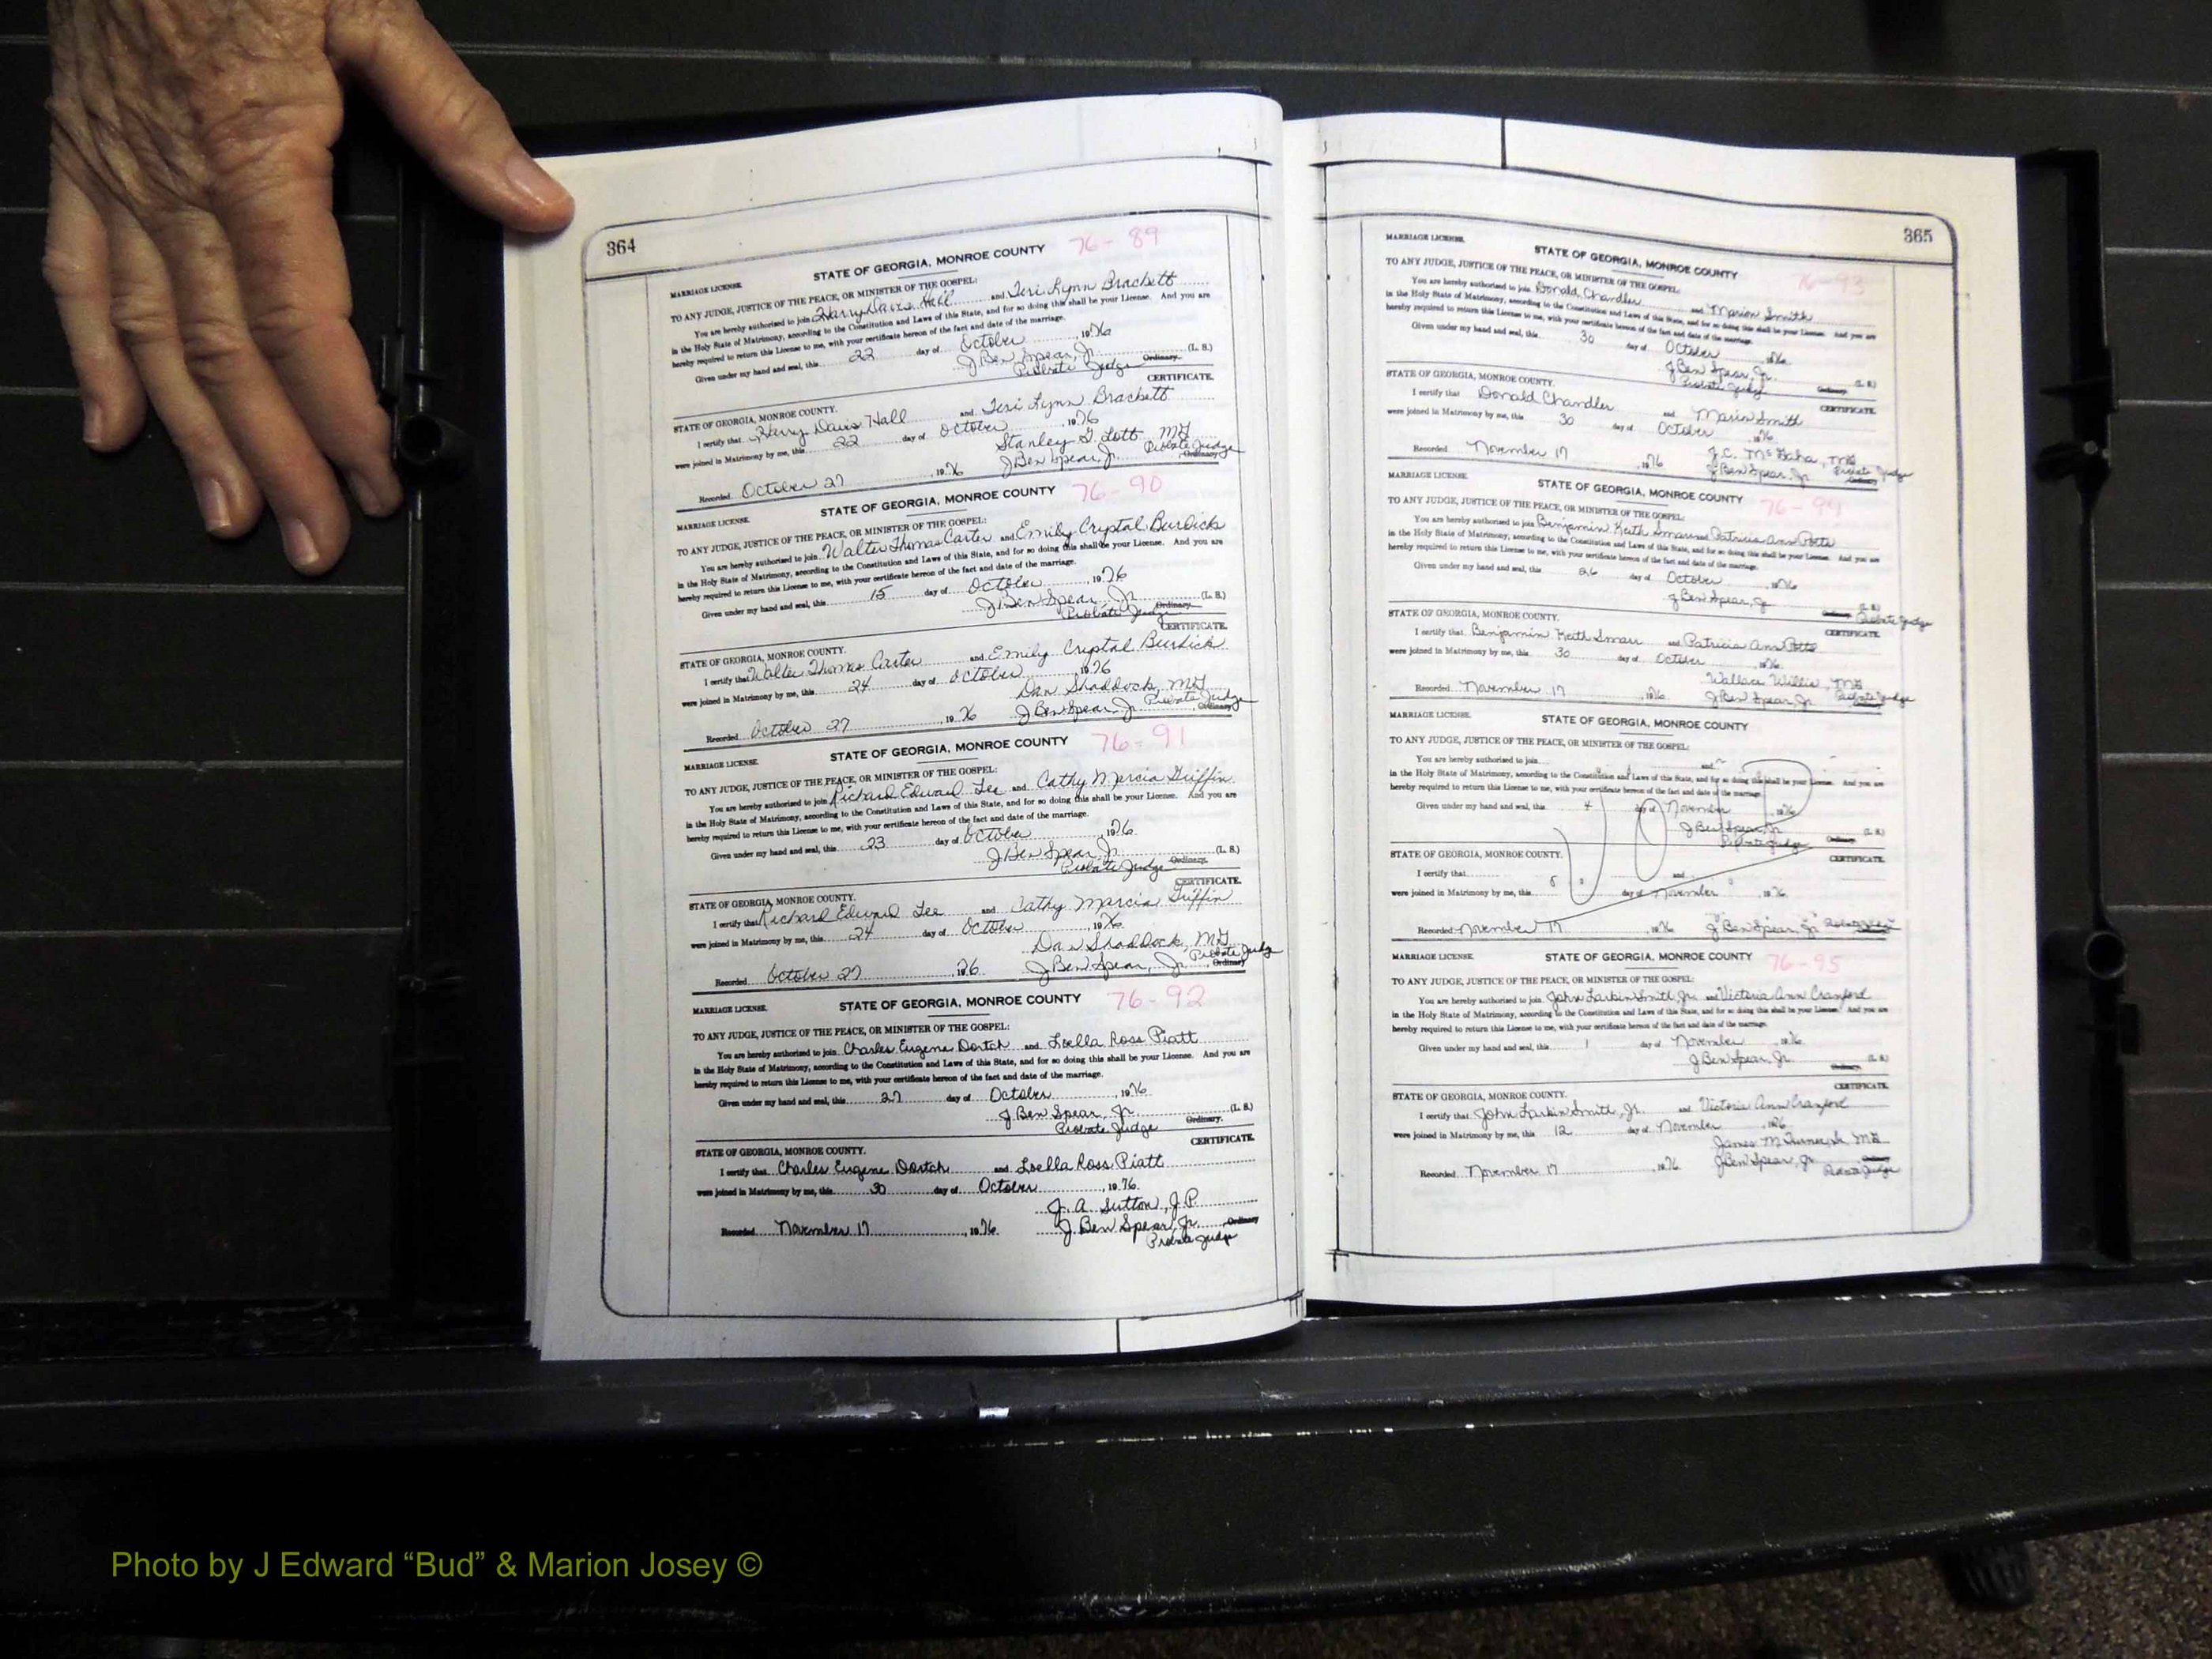 364
76-89
STATE OF GEORGIA, MONROE COUNTY
MARRIAGE LICENSE.
TO ANY JUDGE, JUSTICE OF THE PEACE, OR MINISTER OF THE GOSPEL:
You are hereby authorized to join Harry Davis Hall and Teri Lynn Brackett
in the Holy State of Matrimony, according to the Constitution and Laws of this State, and for so doing this shall be your License. And you are
hereby required to return this License to me, with your certificate hereon of the fact and date of the marriage.
Given under my hand and seal, this 22 day of October, 1976
J Ben Spear, Jr. (L. S.)
Probate Judge Ordinary.
CERTIFICATE.
STATE OF GEORGIA, MONROE COUNTY.
I certify that Harry Davis Hall and Teri Lynn Brackett
were joined in Matrimony by me, this 22 day of October 1976
Stanley G. Lott MG
Recorded October 27, 1976 J Ben Spear, Jr. Probate Judge Ordinary
76-90
STATE OF GEORGIA, MONROE COUNTY
MARRIAGE LICENSE.
TO ANY JUDGE, JUSTICE OF THE PEACE, OR MINISTER OF THE GOSPEL:
You are hereby authorized to join Walter Thomas Carter and Emily Crystal Burdick
in the Holy State of Matrimony, according to the Constitution and Laws of this State, and for so doing this shall be your License. And you are
hereby required to return this License to me, with your certificate hereon of the fact and date of the marriage.
Given under my hand and seal, this 15 day of October, 1976
J Ben Spear, Jr (L. S.)
Probate Judge Ordinary.
CERTIFICATE.
STATE OF GEORGIA, MONROE COUNTY.
I certify that Walter Thomas Carter and Emily Crystal Burdick
were joined in Matrimony by me, this 24 day of October 1976
Dan Shaddock, MG
Recorded October 27, 1976 J Ben Spear, Jr Probate Judge Ordinary
76-91
STATE OF GEORGIA, MONROE COUNTY
MARRIAGE LICENSE.
TO ANY JUDGE, JUSTICE OF THE PEACE, OR MINISTER OF THE GOSPEL:
You are hereby authorized to join Richard Edward Lee and Cathy Marcia Griffin
in the Holy State of Matrimony, according to the Constitution and Laws of this State, and for so doing this shall be your License. And you are
hereby required to return this License to me, with your certificate hereon of the fact and date of the marriage.
Given under my hand and seal, this 23 day of October, 1976
J Ben Spear Jr (L. S.)
Probate Judge Ordinary.
CERTIFICATE.
STATE OF GEORGIA, MONROE COUNTY.
I certify that Richard Edward Lee and Cathy Marcia Griffin
were joined in Matrimony by me, this 24 day of October, 1976
Dan Shaddock, MG
Recorded October 27, 1976 J Ben Spear, Jr Probate Judge Ordinary
76-92
STATE OF GEORGIA, MONROE COUNTY
MARRIAGE LICENSE.
TO ANY JUDGE, JUSTICE OF THE PEACE, OR MINISTER OF THE GOSPEL:
You are hereby authorized to join Charles Eugene Dortch and Loella Ross Piatt
in the Holy State of Matrimony, according to the Constitution and Laws of this State, and for so doing this shall be your License. And you are
hereby required to return this License to me, with your certificate hereon of the fact and date of the marriage.
Given under my hand and seal, this 27 day of October, 1976
J Ben Spear, Jr. (L. S.)
Probate Judge Ordinary.
CERTIFICATE.
STATE OF GEORGIA, MONROE COUNTY.
I certify that Charles Eugene Dortch and Loella Ross Piatt
were joined in Matrimony by me, this 30 day of October, 1976.
J. A. Sutton, J.P.
Recorded November 17, 1976. J. Ben Spear, Jr. Ordinary
Probate Judge
365
MARRIAGE LICENSE.
STATE OF GEORGIA, MONROE COUNTY
76-93
TO ANY JUDGE, JUSTICE OF THE PEACE, OR MINISTER OF THE GOSPEL:
You are hereby authorized to join Donald Chandler and Marion Smith
in the Holy State of Matrimony, according to the Constitution and Laws of this State, and for so doing this shall be your License. And you are
hereby required to return this License to me, with your certificate hereon of the fact and date of the marriage.
Given under my hand and seal, this 30 day of October, 1976
J Ben Spear, Jr. (L. S.)
Probate Judge Ordinary.
STATE OF GEORGIA, MONROE COUNTY. CERTIFICATE.
I certify that Donald Chandler and Marin Smith
were joined in Matrimony by me, this 30 day of October, 1976
J.C. McGaha, MG
Recorded November 17, 1976 J Ben Spear, Jr. Probate Judge Ordinary
MARRIAGE LICENSE.
STATE OF GEORGIA, MONROE COUNTY
76-94
TO ANY JUDGE, JUSTICE OF THE PEACE, OR MINISTER OF THE GOSPEL:
You are hereby authorized to join Benjamin Keith Smarr and Patricia Ann Potts
in the Holy State of Matrimony, according to the Constitution and Laws of this State, and for so doing this shall be your License. And you are
hereby required to return this License to me, with your certificate hereon of the fact and date of the marriage.
Given under my hand and seal, this 26 day of October, 1976
J Ben Spear, Jr (L. S.)
Ordinary. Probate Judge
STATE OF GEORGIA, MONROE COUNTY. CERTIFICATE.
I certify that Benjamin Keith Smarr and Patricia Ann Potts
were joined in Matrimony by me, this 30 day of October, 1976
Wallace Willis, MG
Recorded November 17, 1976 J Ben Spear Jr Probate Judge Ordinary
MARRIAGE LICENSE.
STATE OF GEORGIA, MONROE COUNTY
TO ANY JUDGE, JUSTICE OF THE PEACE, OR MINISTER OF THE GOSPEL:
You are hereby authorized to join and
in the Holy State of Matrimony, according to the Constitution and Laws of this State, and for so doing this shall be your License. And you are
hereby required to return this License to me, with your certificate hereon of the fact and date of the marriage.
Given under my hand and seal, this 4 day of November, 1976
J Ben Spear, Jr (L. S.)
Probate Judge Ordinary.
VOID
STATE OF GEORGIA, MONROE COUNTY. CERTIFICATE.
I certify that and
were joined in Matrimony by me, this day of November, 1976
Recorded November 17, 1976 J Ben Spear, Jr
MARRIAGE LICENSE.
STATE OF GEORGIA, MONROE COUNTY 76-95
TO ANY JUDGE, JUSTICE OF THE PEACE, OR MINISTER OF THE GOSPEL:
You are hereby authorized to join John Larkin Smith Jr. and Victoria Ann Cranford
in the Holy State of Matrimony, according to the Constitution and Laws of this State, and for so doing this shall be your License. And you are
hereby required to return this License to me, with your certificate hereon of the fact and date of the marriage.
Given under my hand and seal, this 1 day of November, 1976
J Ben Spear, Jr. (L. S.)
Ordinary.
CERTIFICATE.
STATE OF GEORGIA, MONROE COUNTY.
I certify that John Larkin Smith, Jr. and Victoria Ann Cranford
were joined in Matrimony by me, this 12 day of November, 1976
James M Turner, Sr, MG
Recorded November 17, 1976 J Ben Spear, Jr Ordinary
Probate Judge
Photo by J Edward “Bud” & Marion Josey ©